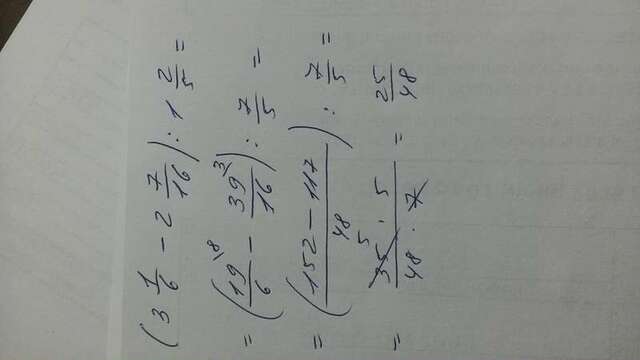 (3 1/6 − 2 7/16) : 1 2/5 =
= (19\8/6 − 39\3/16) : 7/5 =
= (152 − 117/48) : 7/5 =
= 35 5 · 5/48 · 7 = 25/48